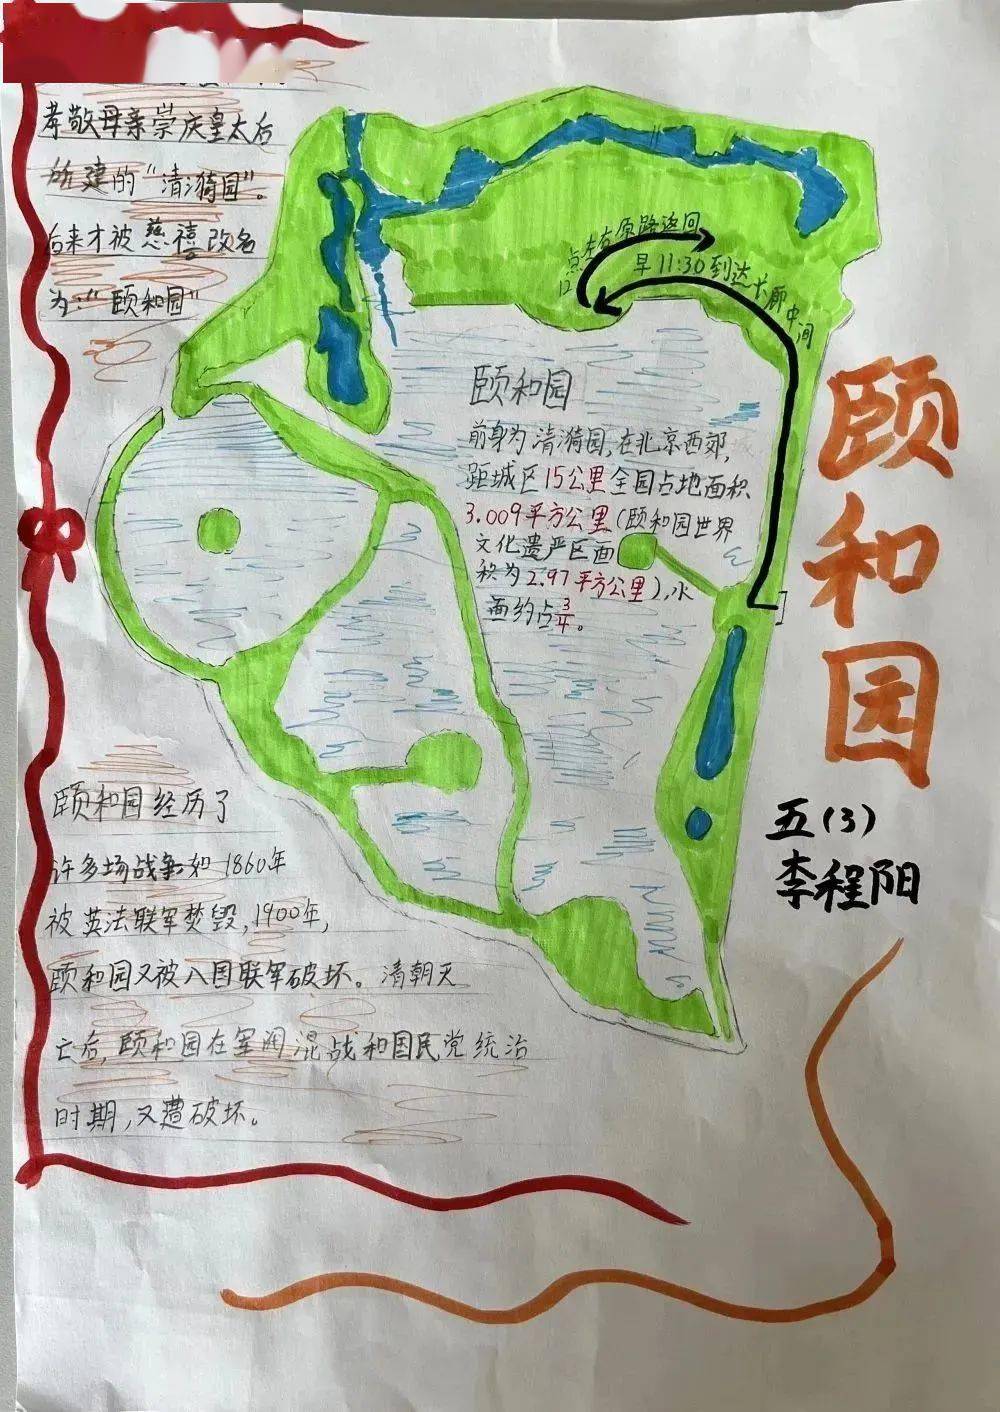 孝敬母亲崇庆皇太后
所建的“清漪园”。
后来才被慈禧改名
为:“颐和园”
12点左右原路返回
早11:30到达长廊中间
颐和园
前身为清漪园,在北京西郊,
距城区15公里全园占地面积
3.009平方公里(颐和园世界
文化遗产区面
积为2.97平方公里),水
面约占3/4。
颐和园
五(3)
李程阳
颐和园经历了
许多场战争如1860年
被英法联军焚毁,1900年,
颐和园又被八国联军破坏。清朝灭
亡后,颐和园在军阀混战和国民党统治
时期,又遭破坏。